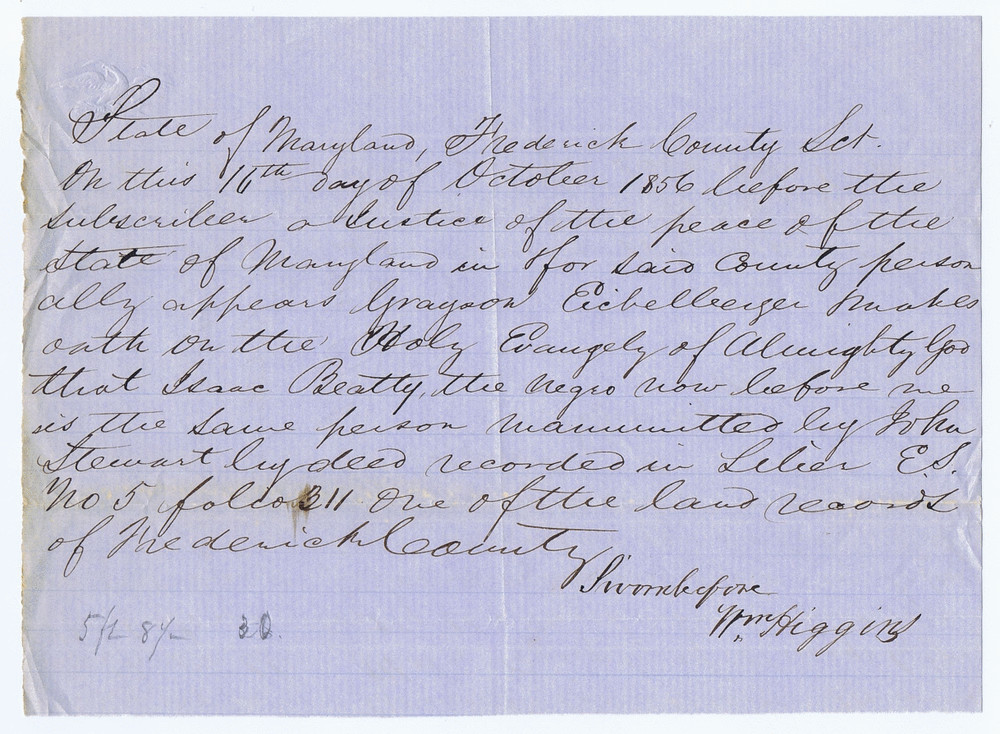 State of Maryland, Frederick County Sct.
On this 16th day of October 1856 before the
subscriber a Justice of the peace of the
State of Maryland in & for said County person
ally appears Grayson Eichelberger & makes
oath on the Holy Evangely of Almighty God
that Isaac Beatty, the negro now before me
is the same person manumitted by John
Stewart by deed recorded in Liber E.S.
No 5 folio 311 one of the land records
of Frederick County
Sworn before
Wm Higgins
30.